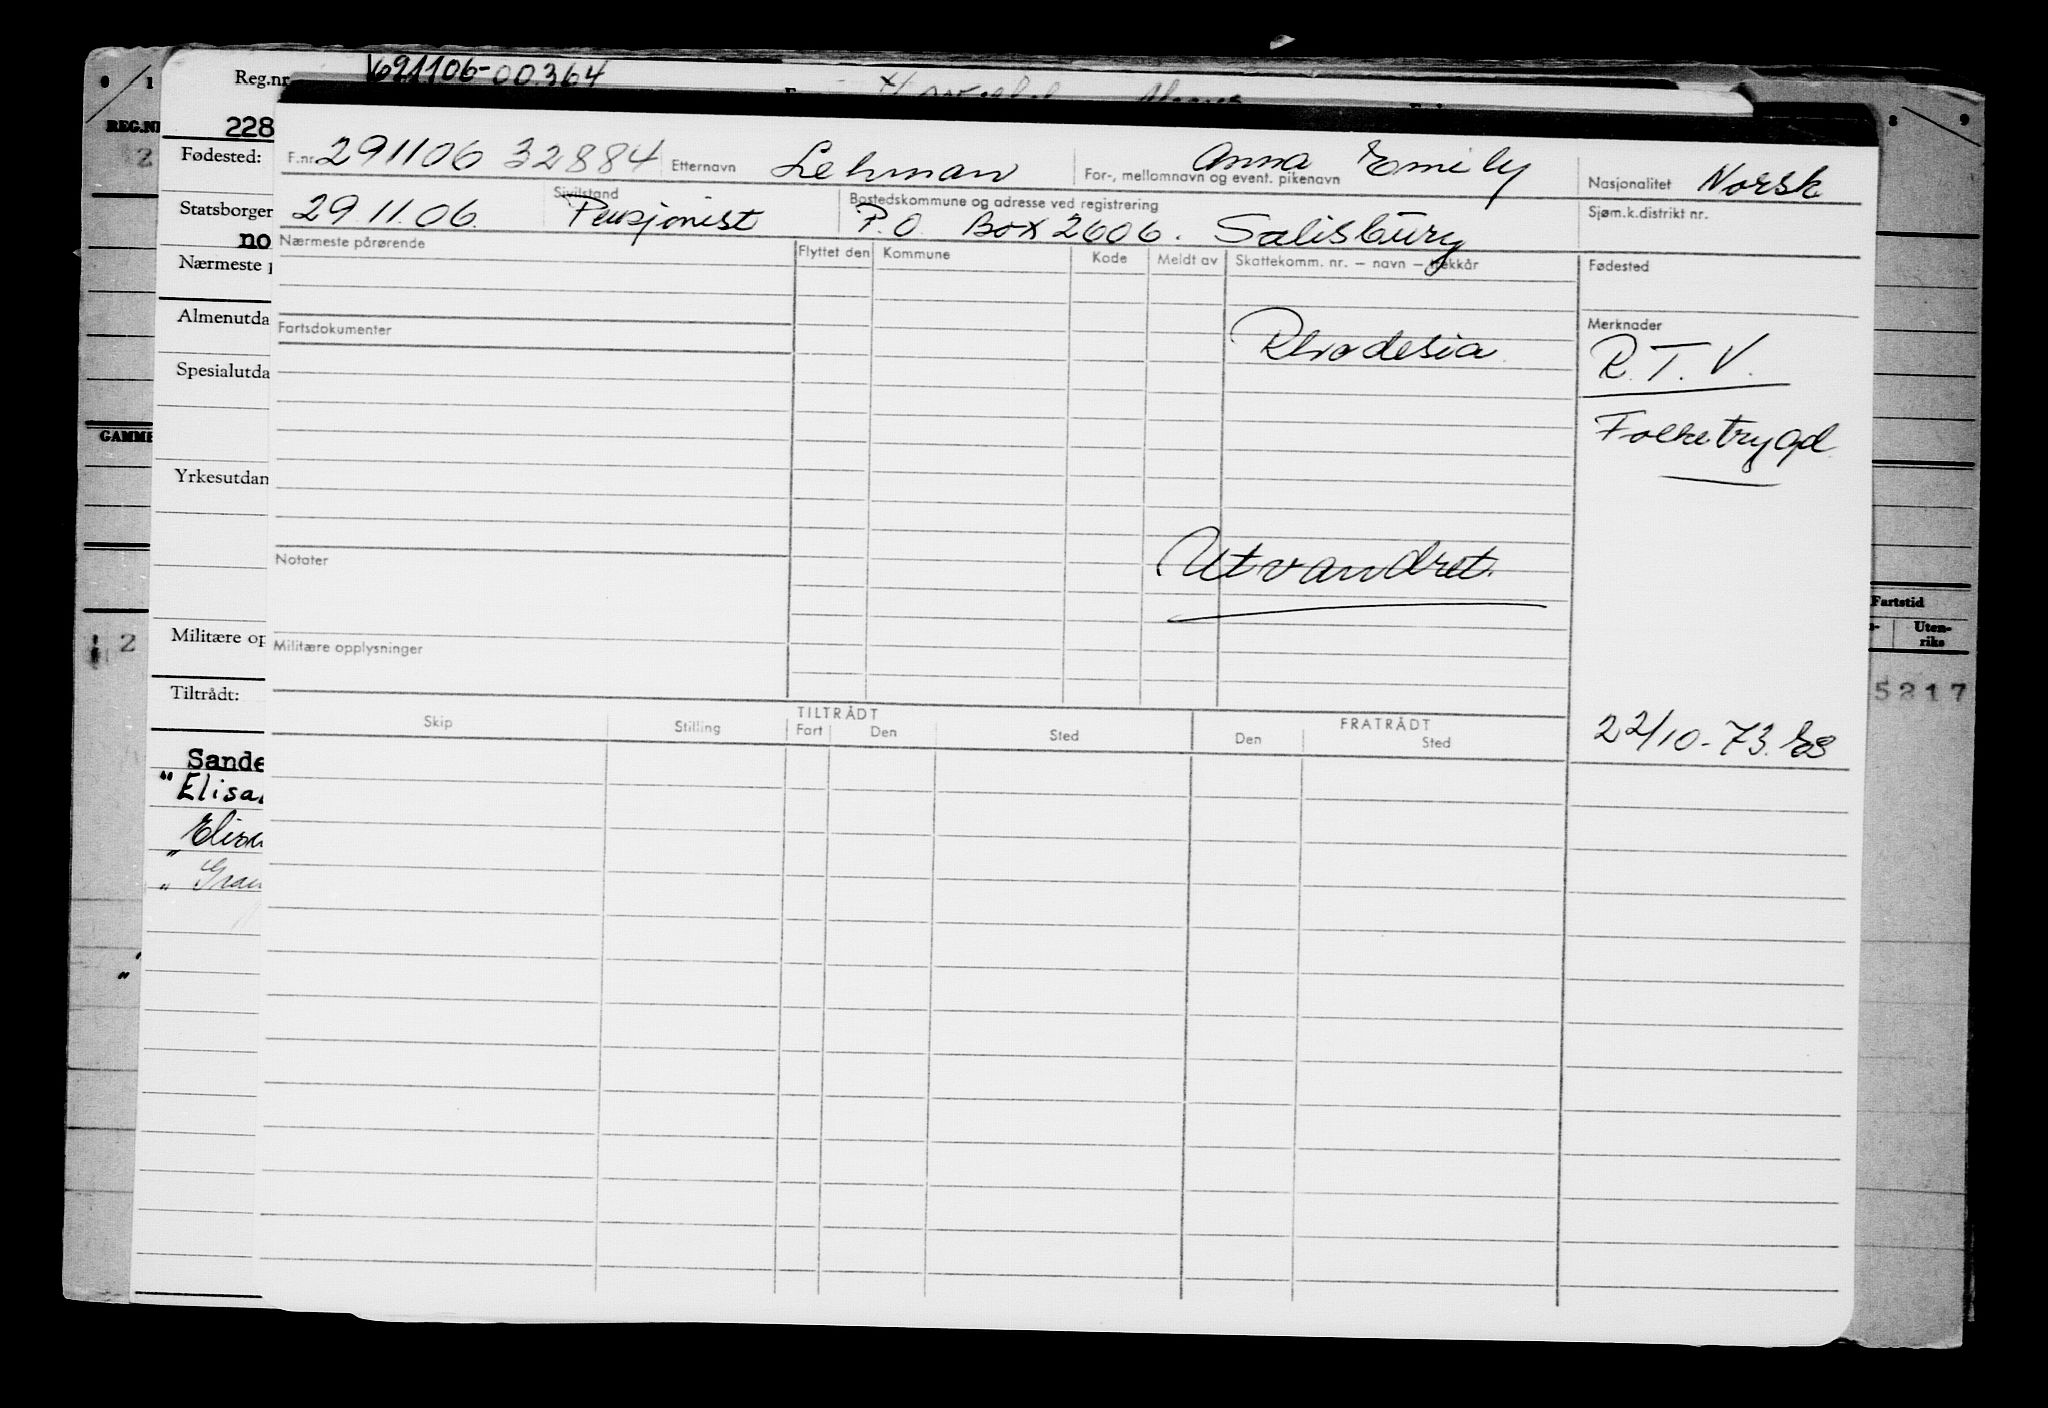 0 1
Reg.nr. 691106-00364
REG.N
228
8 9
2
Fødested:
F.nr. 291106 32884 Etternavn Lehman For-, mellomnavn og event. pikenavn Anna Emily Nasjonalitet Norsk
Statsborger
29 11.06. Sivilstand Pensjonist Bostedskommune og adresse ved registrering P.O. Box 2606. Salisbury Sjøm.k.distrikt nr.
no
Nærmeste pårørende Flyttet den Kommune Kode Meldt av Skattekomm. nr. – navn – trekkår Fødested
Nærmeste p
Almenutda
Fartsdokumenter Rhodesia. Merknader
R.T.V.
Spesialutda
Folketrygd
GAMME
Yrkesutdan
Notater Utvandret.
Fartstid
Uten-
riks
Militære op
Militære opplysninger
12
Tiltrådt:
5217
Skip Stilling TILTRÅDT FRATRÅDT
Fart Den Sted Den Sted
22/10-73.
Sande
"Elisa
" Elisa
" Gran
"